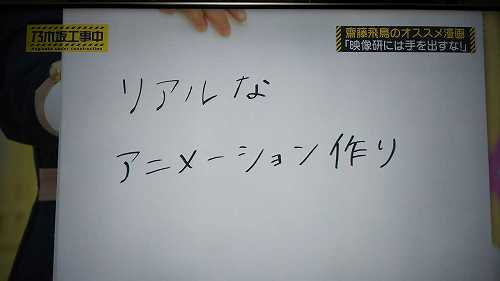 乃木坂工事中
Nogizaka under construction
齋藤飛鳥のオススメ漫画
「映像研には手を出すな!」
リアルな
アニメーション作り